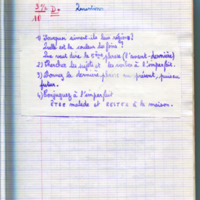 Questions
10
1) Pourquoi aiment-ils leur région?
Quelle est la couleur des foins?
Que veut dire la 5ème phrase (l'avant-dernière)
2) Chercher les sujets et les verbes à l'imparfait.
3) Mettre la dernière phrase au présent, puis au
futur.
4) Conjuguez à l'imparfait
ETRE malade et RESTER à la maison.